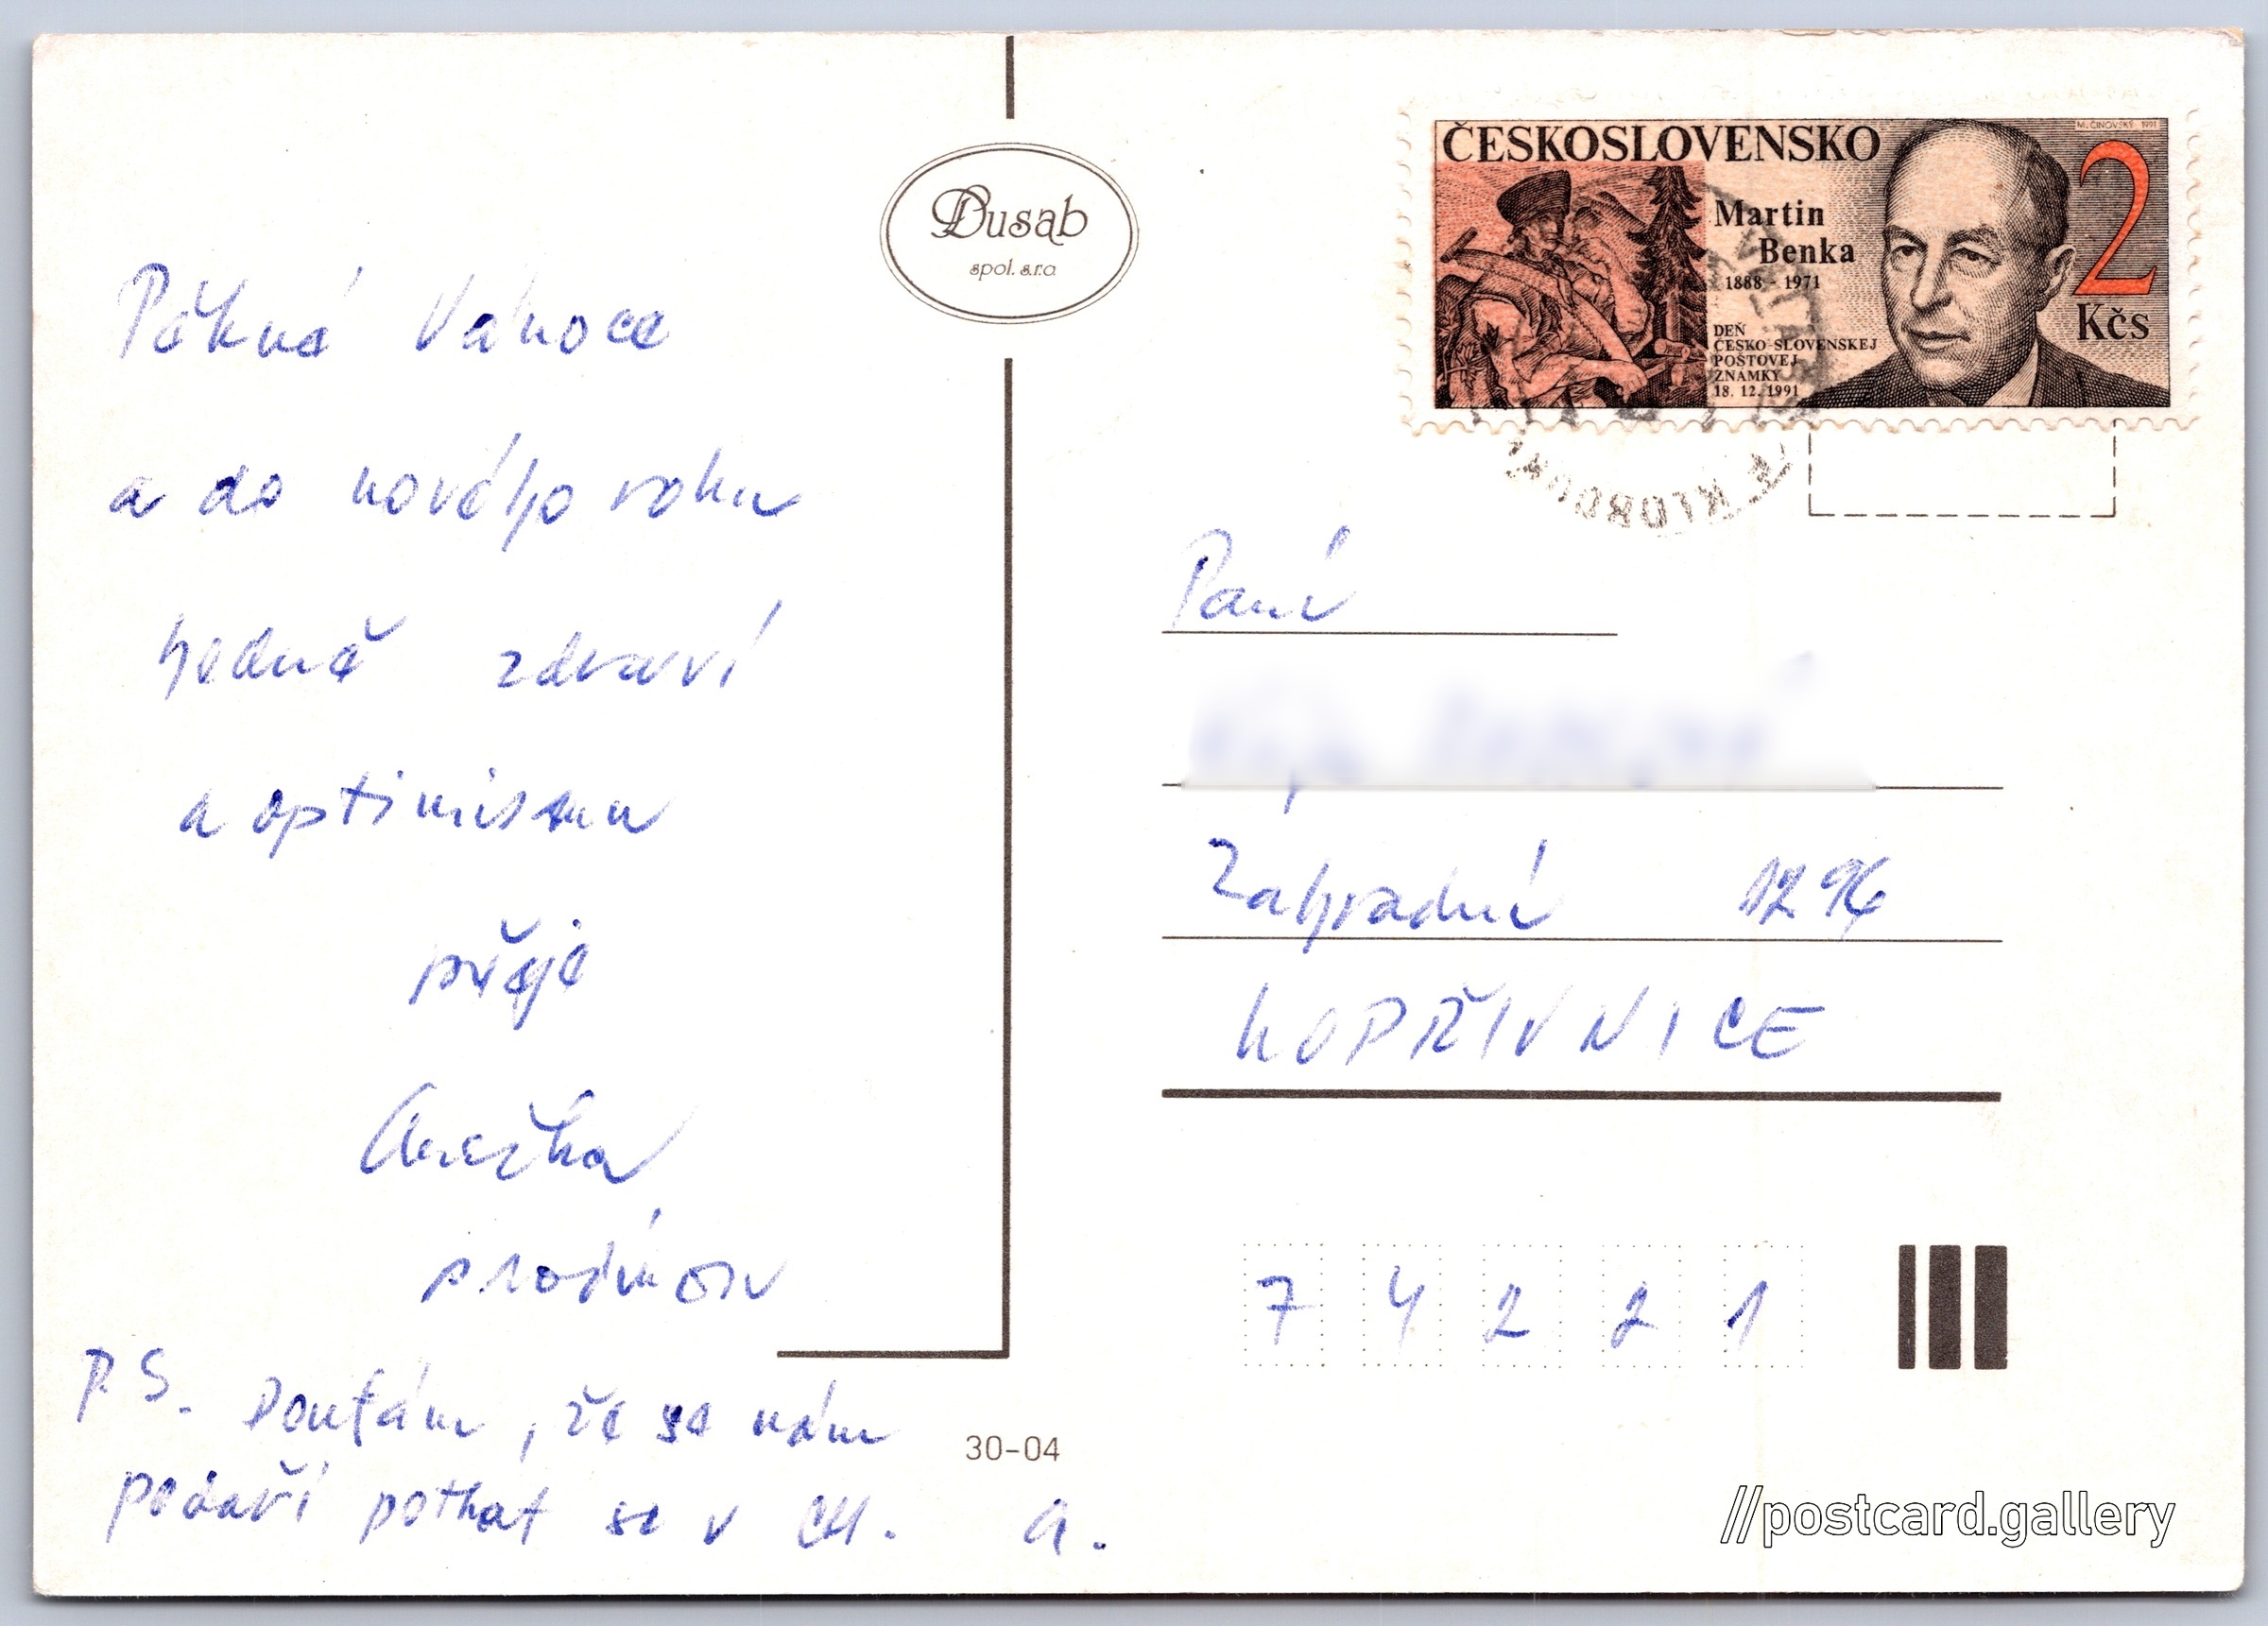 Pěkné Vánoce
a do nového roku
hodně zdraví
a optimismu
přeje
Anežka
s rodinou
P.S. Doufám, že se nám
podaří potkat se v ČM. A.
Dusab
spol. s.r.o
30-04
ČESKOSLOVENSKO
M. ČINOVSKÝ 1991
Martin
Benka
1888 - 1971
DEŇ
ČESKO-SLOVENSKEJ
POŠTOVEJ
ZNÁMKY
18. 12. 1991
2
Kčs
KLOBOUKY
Paní
Zahradní 1296
KOPŘIVNICE
7 4 2 2 1
//postcard.gallery